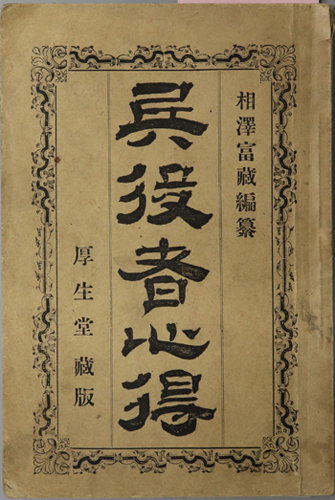 相澤富藏編纂
兵役者心得
厚生堂藏版